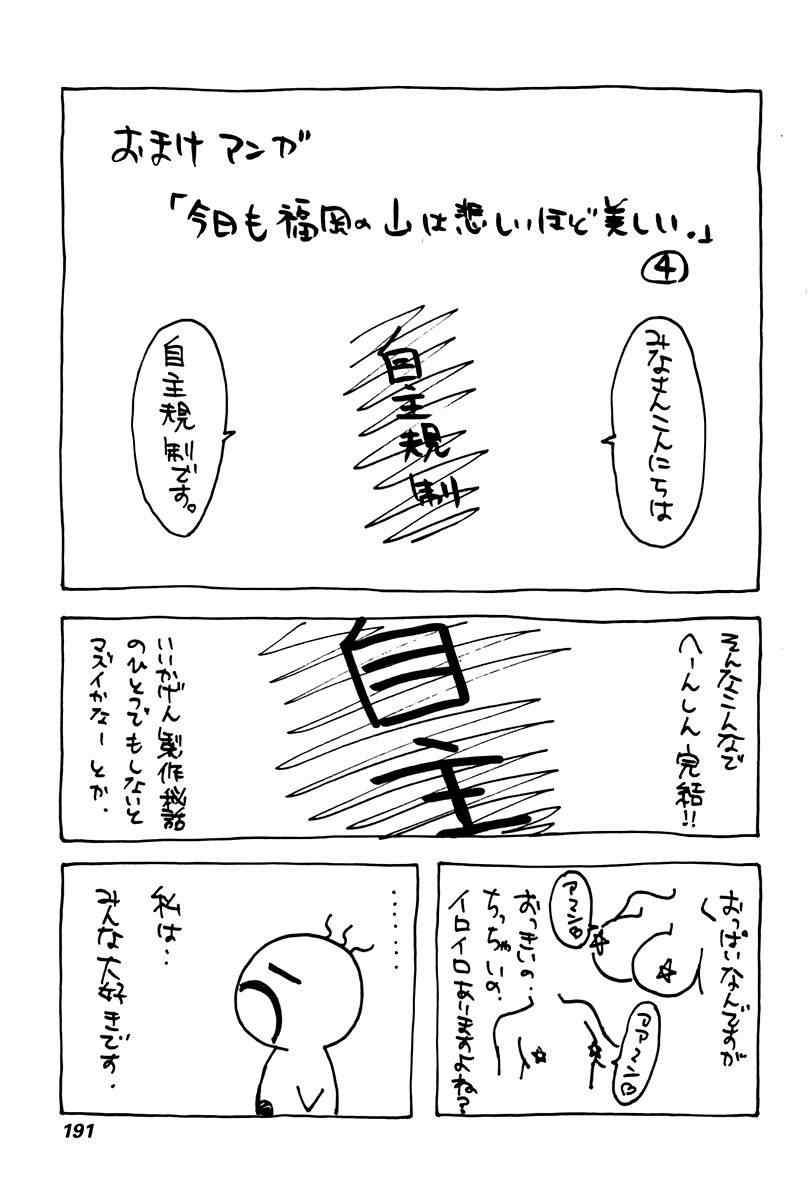 おまけマンガ
「今日も福岡の山は悲しいほど美しい。」
④
みなさんこんにちは
自主規制
自主規制です。
そんなこんなで
へーんしん完結!!
自主
いいかげん製作秘話
のひとつでもしないと
マズイかなーとか.
おっぱいなんですが
アマン田
おっきいの..
ちっちゃいの.
イロイロありますよね?
アアマン田
・・・・・・
私は..
みんな大好きです.
191